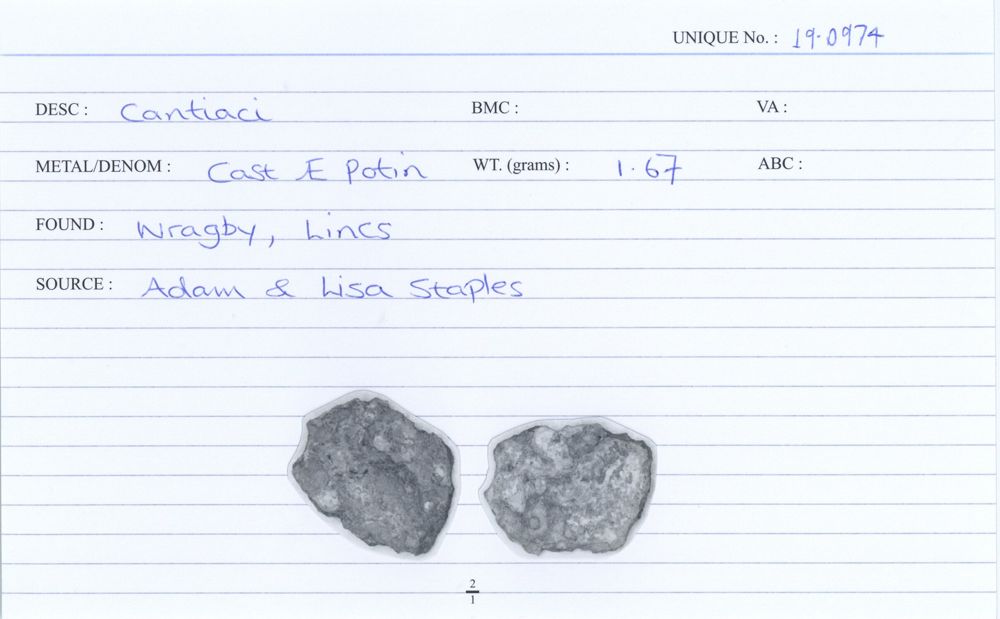 UNIQUE No. : 19.0974
DESC : Cantiaci BMC : VA :
METAL/DENOM : Cast Æ Potin WT. (grams) : 1.67 ABC :
FOUND : Wragby, Lincs
SOURCE : Adam & Lisa Staples
2
1